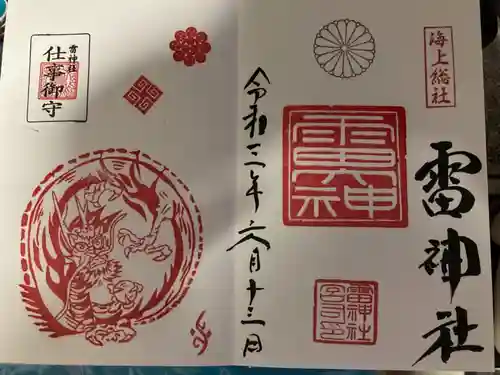 海上総社
雷神社
雷神社
雷神社
宮司印
令和三年六月十三日
雷神社
仕事御守